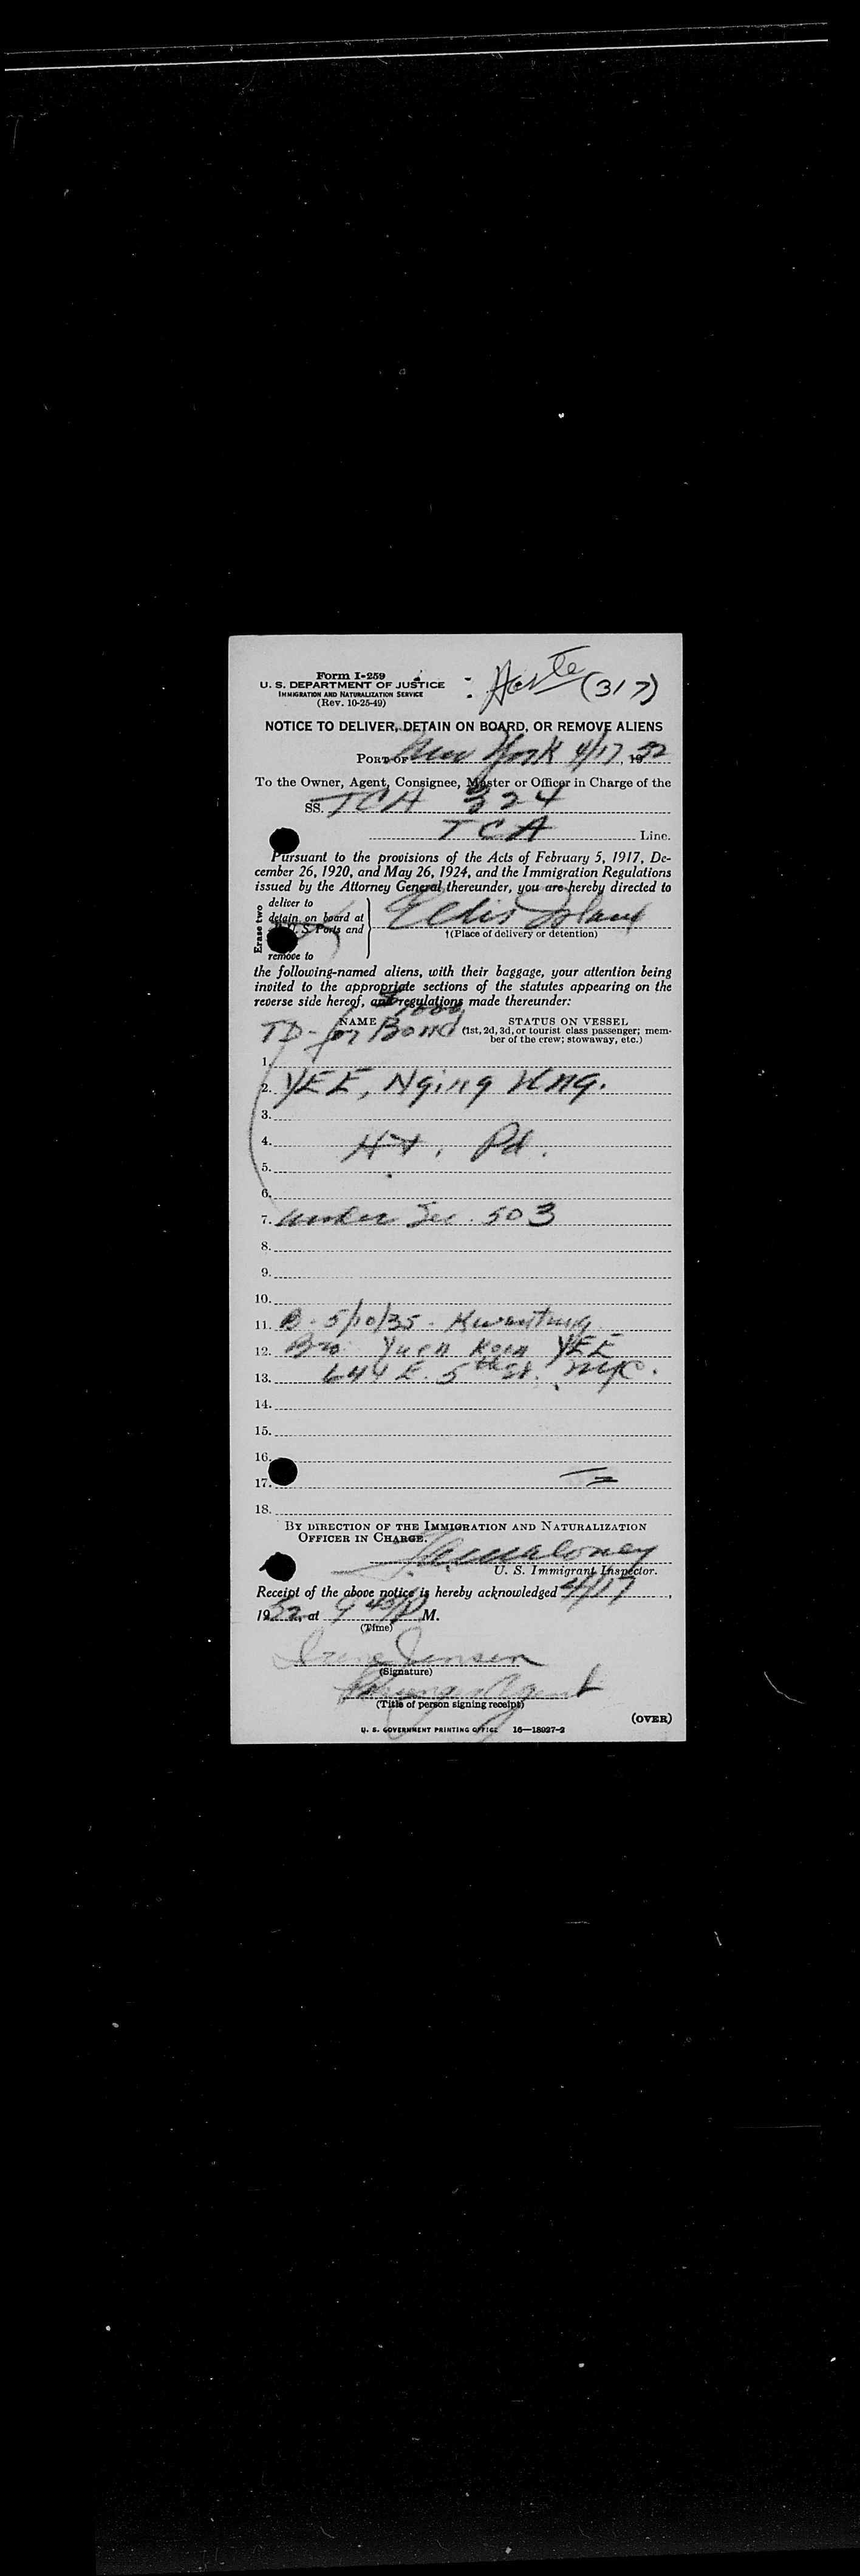 Form I-259
U. S. DEPARTMENT OF JUSTICE
IMMIGRATION AND NATURALIZATION SERVICE
(Rev. 10-25-49)
(317)
NOTICE TO DELIVER, DETAIN ON BOARD, OR REMOVE ALIENS
PORT OF New York 4/17, 1952
To the Owner, Agent, Consignee, Master or Officer in Charge of the
SS. TCA 324
TCA Line.
Pursuant to the provisions of the Acts of February 5, 1917, De-
cember 26, 1920, and May 26, 1924, and the Immigration Regulations
issued by the Attorney General thereunder, you are hereby directed to
Erase two
deliver to
detain on board at
U. S. Ports and
remove to
Ellis Island
†(Place of delivery or detention)
the following-named aliens, with their baggage, your attention being
invited to the appropriate sections of the statutes appearing on the
reverse side hereof, and regulations made thereunder:
$1000
NAME STATUS ON VESSEL
TD - for Bond (1st, 2d, 3d, or tourist class passenger; mem-
ber of the crew; stowaway, etc.)
1.
2. YEE, Nging Hng.
3.
4. HT. Pd.
5.
6.
7. under Sec. 503
8.
9.
10.
11. B. 5/10/35 - Kwantung
12. Bro. Yuen Koen YEE
13. 644 E. 5th St. NYC.
14.
15.
16.
17.
18.
BY DIRECTION OF THE IMMIGRATION AND NATURALIZATION
OFFICER IN CHARGE.
Maloney
U. S. Immigrant Inspector.
Receipt of the above notice is hereby acknowledged 4/17,
1952, at 9 45 P M.
(Time)
Irene Jensen
(Signature)
Agent
(Title of person signing receipt)
(OVER)
U. S. GOVERNMENT PRINTING OFFICE 16—18927-2